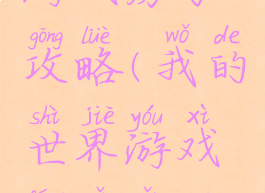 gōng lüè wǒ de
攻略(我的
shì jiè yóu xì
世界游戏